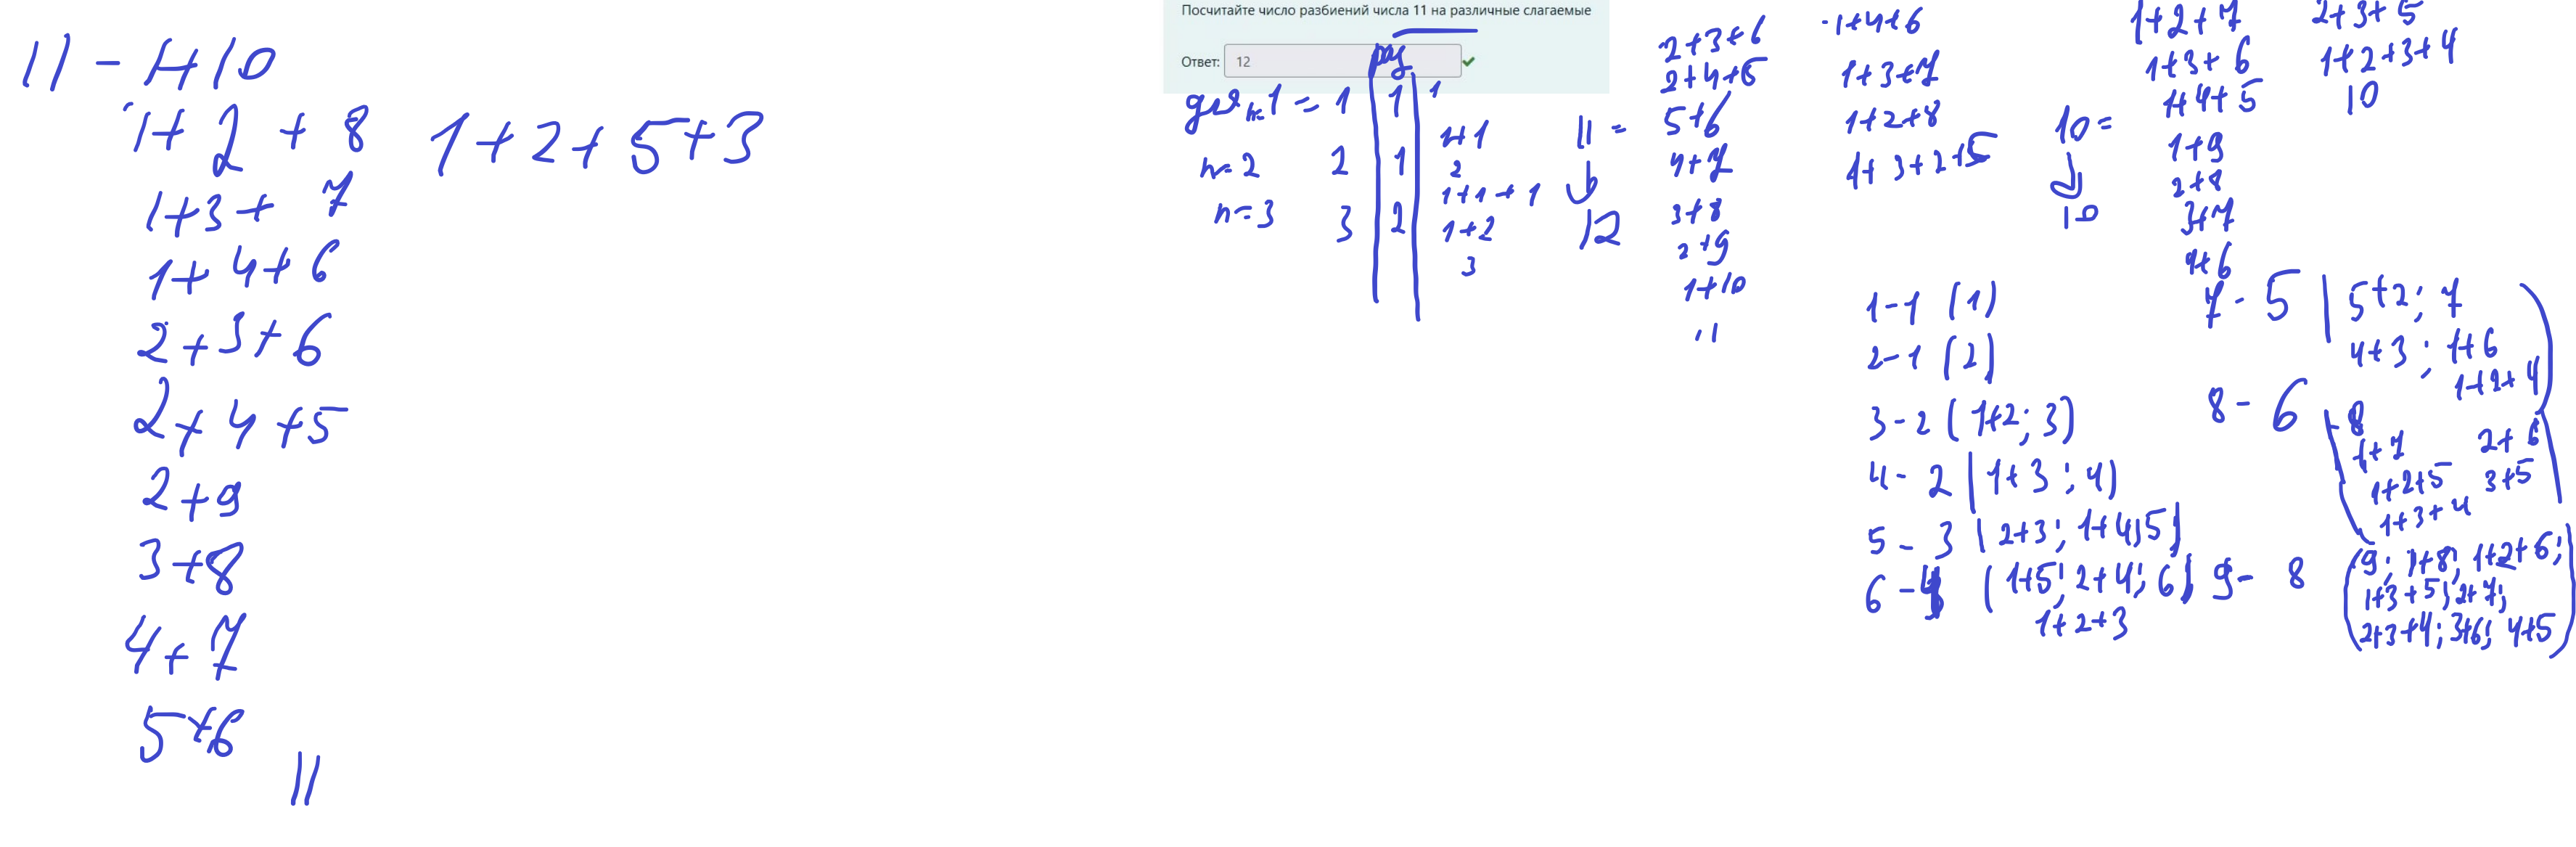 11 - 1+10
1+ 2 + 8
1+2+5+3
1+3+ 7
1+ 4+ 6
2+3+6
2+ 4 +5
2+9
3+8
4+7
5+6
11
Посчитайте число разбиений числа 11 на различные слагаемые
Ответ: 12
раз
для n=1 = 1 1 1
1+1
n=2 2 1 2
1+1+1
n=3 3 2 1+2
3
11 =
12
2+3+6
2+4+5
5+6
4+7
3+8
2+9
1+10
11
1+4+6
1+3+7
1+2+8
1+3+2+5
10=
10
1+2+7
1+3+6
1+4+5
1+9
2+8
3+7
4+6
2+3+5
1+2+3+4
10
1-1 (1)
2-1 (2)
3-2 (1+2; 3)
4-2 (1+3; 4)
5-3 (2+3; 1+4; 5)
6-4 (1+5; 2+4; 6)
1+2+3
7-5 (5+2; 7
4+3; 1+6
1+2+4)
8-6 (8
1+7 2+6
1+2+5 3+5
1+3+4)
9-8 (9; 1+8; 1+2+6;
1+3+5; 2+7;
2+3+4; 3+6; 4+5)